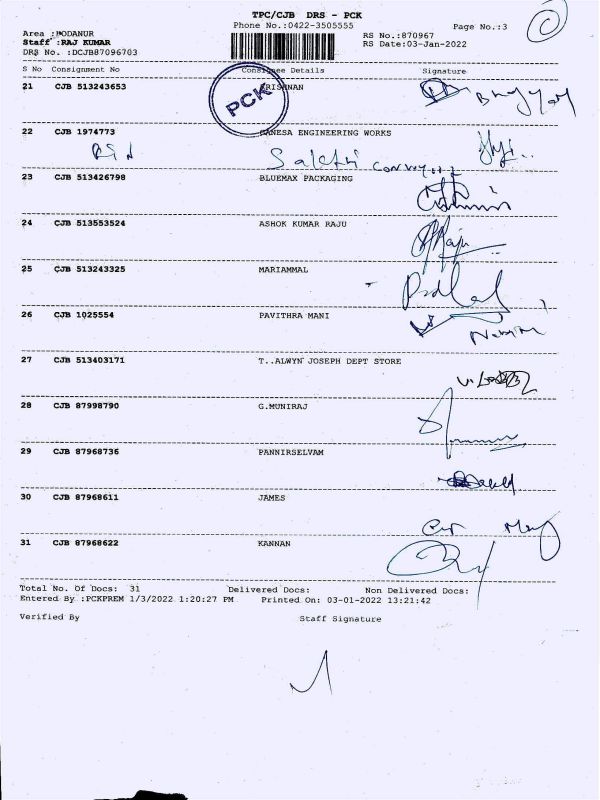 TPC/CJB DRS - PCK
Phone No.:0422-3505555
Page No.:3
Area :PODANUR
RS No.:870967
Staff :RAJ KUMAR
RS Date:03-Jan-2022
DRS No. :DCJB87096703
S No Consignment No Consignee Details Signature
PCK
21 CJB 513243653 KRISHNAN
22 CJB 1974773 GANESA ENGINEERING WORKS
Sakthi
23 CJB 513426798 BLUEMAX PACKAGING
24 CJB 513553524 ASHOK KUMAR RAJU
Raju
25 CJB 513243325 MARIAMMAL
26 CJB 1025554 PAVITHRA MANI
27 CJB 513403171 T..ALWYN JOSEPH DEPT STORE
28 CJB 87998790 G.MUNIRAJ
29 CJB 87968736 PANNIRSELVAM
30 CJB 87968611 JAMES
31 CJB 87968622 KANNAN
Total No. Of Docs: 31 Delivered Docs: Non Delivered Docs:
Entered By :PCKPREM 1/3/2022 1:20:27 PM Printed On: 03-01-2022 13:21:42
Verified By Staff Signature